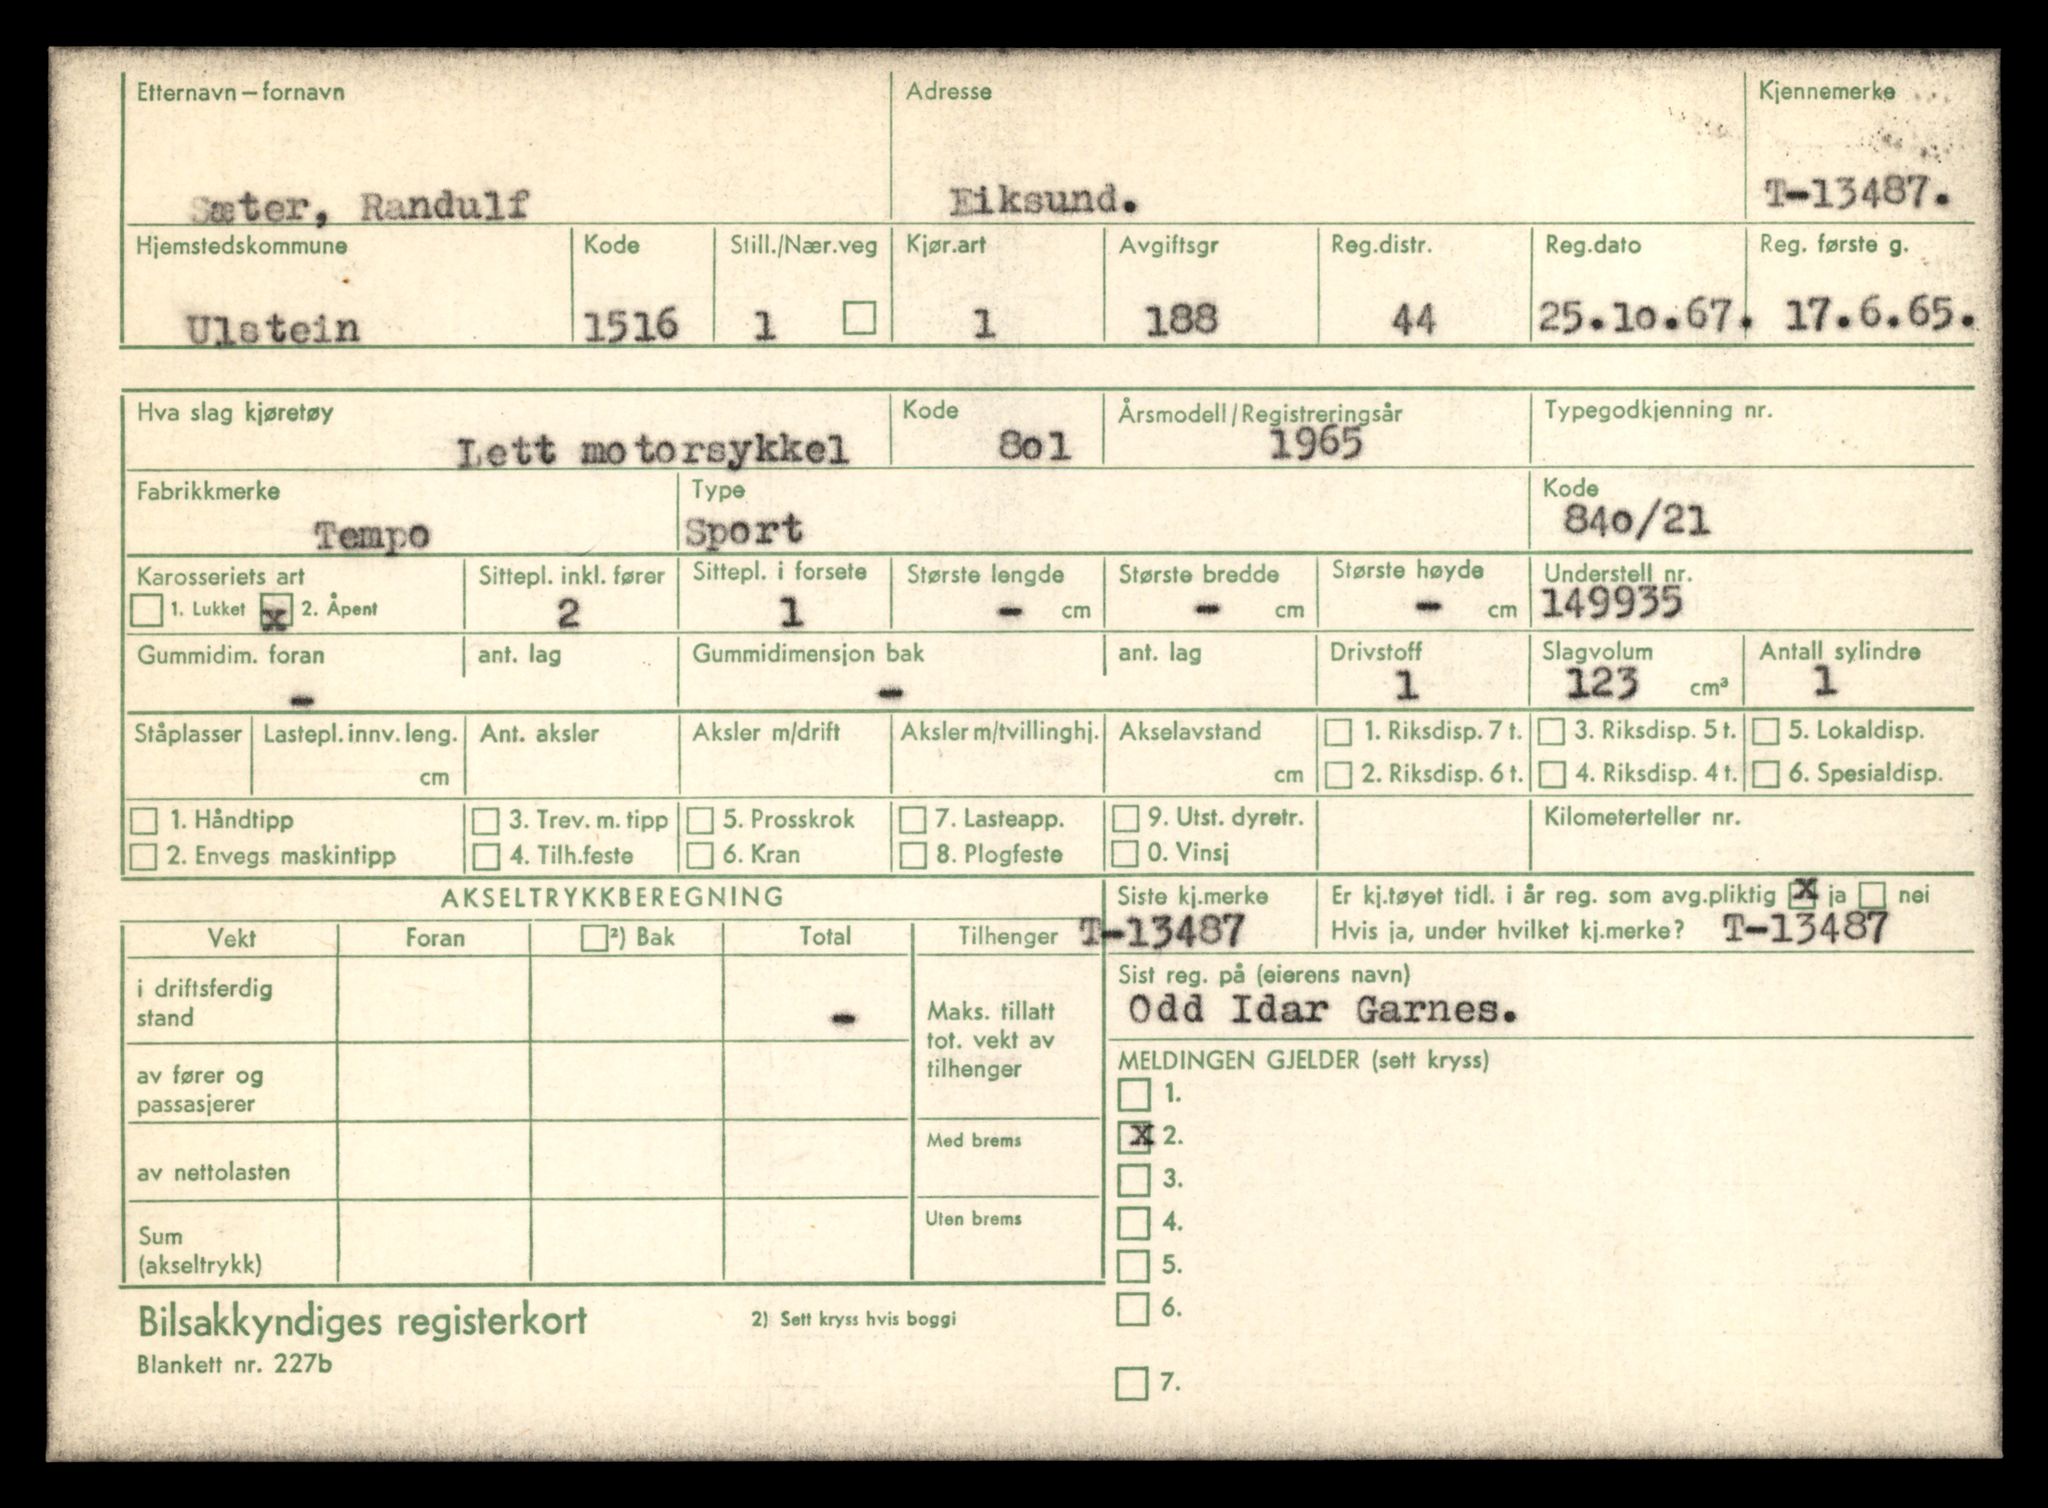 Etternavn – fornavn Adresse Kjennemerke
Sæter, Randulf Eiksund. T-13487.
Hjemstedskommune Kode Still./Nær.veg Kjør.art Avgiftsgr Reg.distr. Reg.dato Reg. første g.
Ulstein 1516 1 1 188 44 25.10.67. 17.6.65.
Hva slag kjøretøy Kode Årsmodell/Registreringsår Typegodkjenning nr.
Lett motorsykkel 801 1965
Fabrikkmerke Type Kode
Tempo Sport 840/21
Karosseriets art Sittepl. inkl. fører Sittepl. i forsete Største lengde Største bredde Største høyde Understell nr.
1. Lukket x 2. Åpent 2 1 - cm - cm - cm 149935
Gummidim. foran ant. lag Gummidimensjon bak ant. lag Drivstoff Slagvolum Antall sylindre
- - 1 123 cm³ 1
Ståplasser Lastepl. innv. leng. Ant. aksler Aksler m/drift Aksler m/tvillinghj. Akselavstand 1. Riksdisp. 7 t. 3. Riksdisp. 5 t. 5. Lokaldisp.
cm cm 2. Riksdisp. 6 t. 4. Riksdisp. 4 t. 6. Spesialdisp.
1. Håndtipp 3. Trev. m. tipp 5. Prosskrok 7. Lasteapp. 9. Utst. dyretr. Kilometerteller nr.
2. Envegs maskintipp 4. Tilh.feste 6. Kran 8. Plogfeste 0. Vinsj
AKSELTRYKKBEREGNING Siste kj.merke Er kj.tøyet tidl. i år reg. som avg.pliktig x ja nei
T-13487 Hvis ja, under hvilket kj.merke? T-13487
Vekt Foran ²) Bak Total Tilhenger
Sist reg. på (eierens navn)
Odd Idar Garnes.
i driftsferdig
stand -
Maks. tillatt
tot. vekt av
tilhenger
MELDINGEN GJELDER (sett kryss)
av fører og
passasjerer
1.
Med brems x 2.
av nettolasten 3.
Uten brems 4.
Sum
(akseltrykk) 5.
6.
Bilsakkyndiges registerkort 2) Sett kryss hvis boggi
Blankett nr. 227b
7.